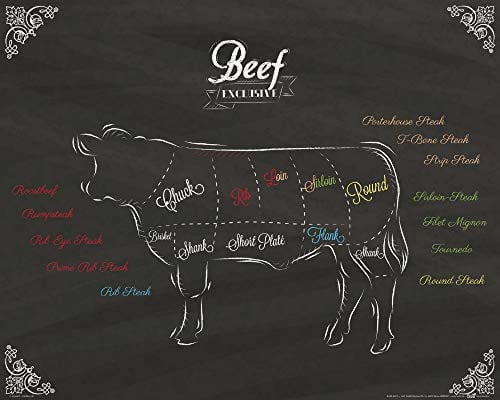 Beef
EXCLUSIVE
Porterhouse Steak
T-Bone Steak
Strip Steak
Chuck
Rib
Loin
Sirloin
Round
Roastbeef
Rumpsteak
Rib-Eye Steak
Prime Rib Steak
Rib Steak
Sirloin-Steak
Filet Mignon
Tournedo
Round Steak
Brisket
Shank
Short Plate
Flank
Shank